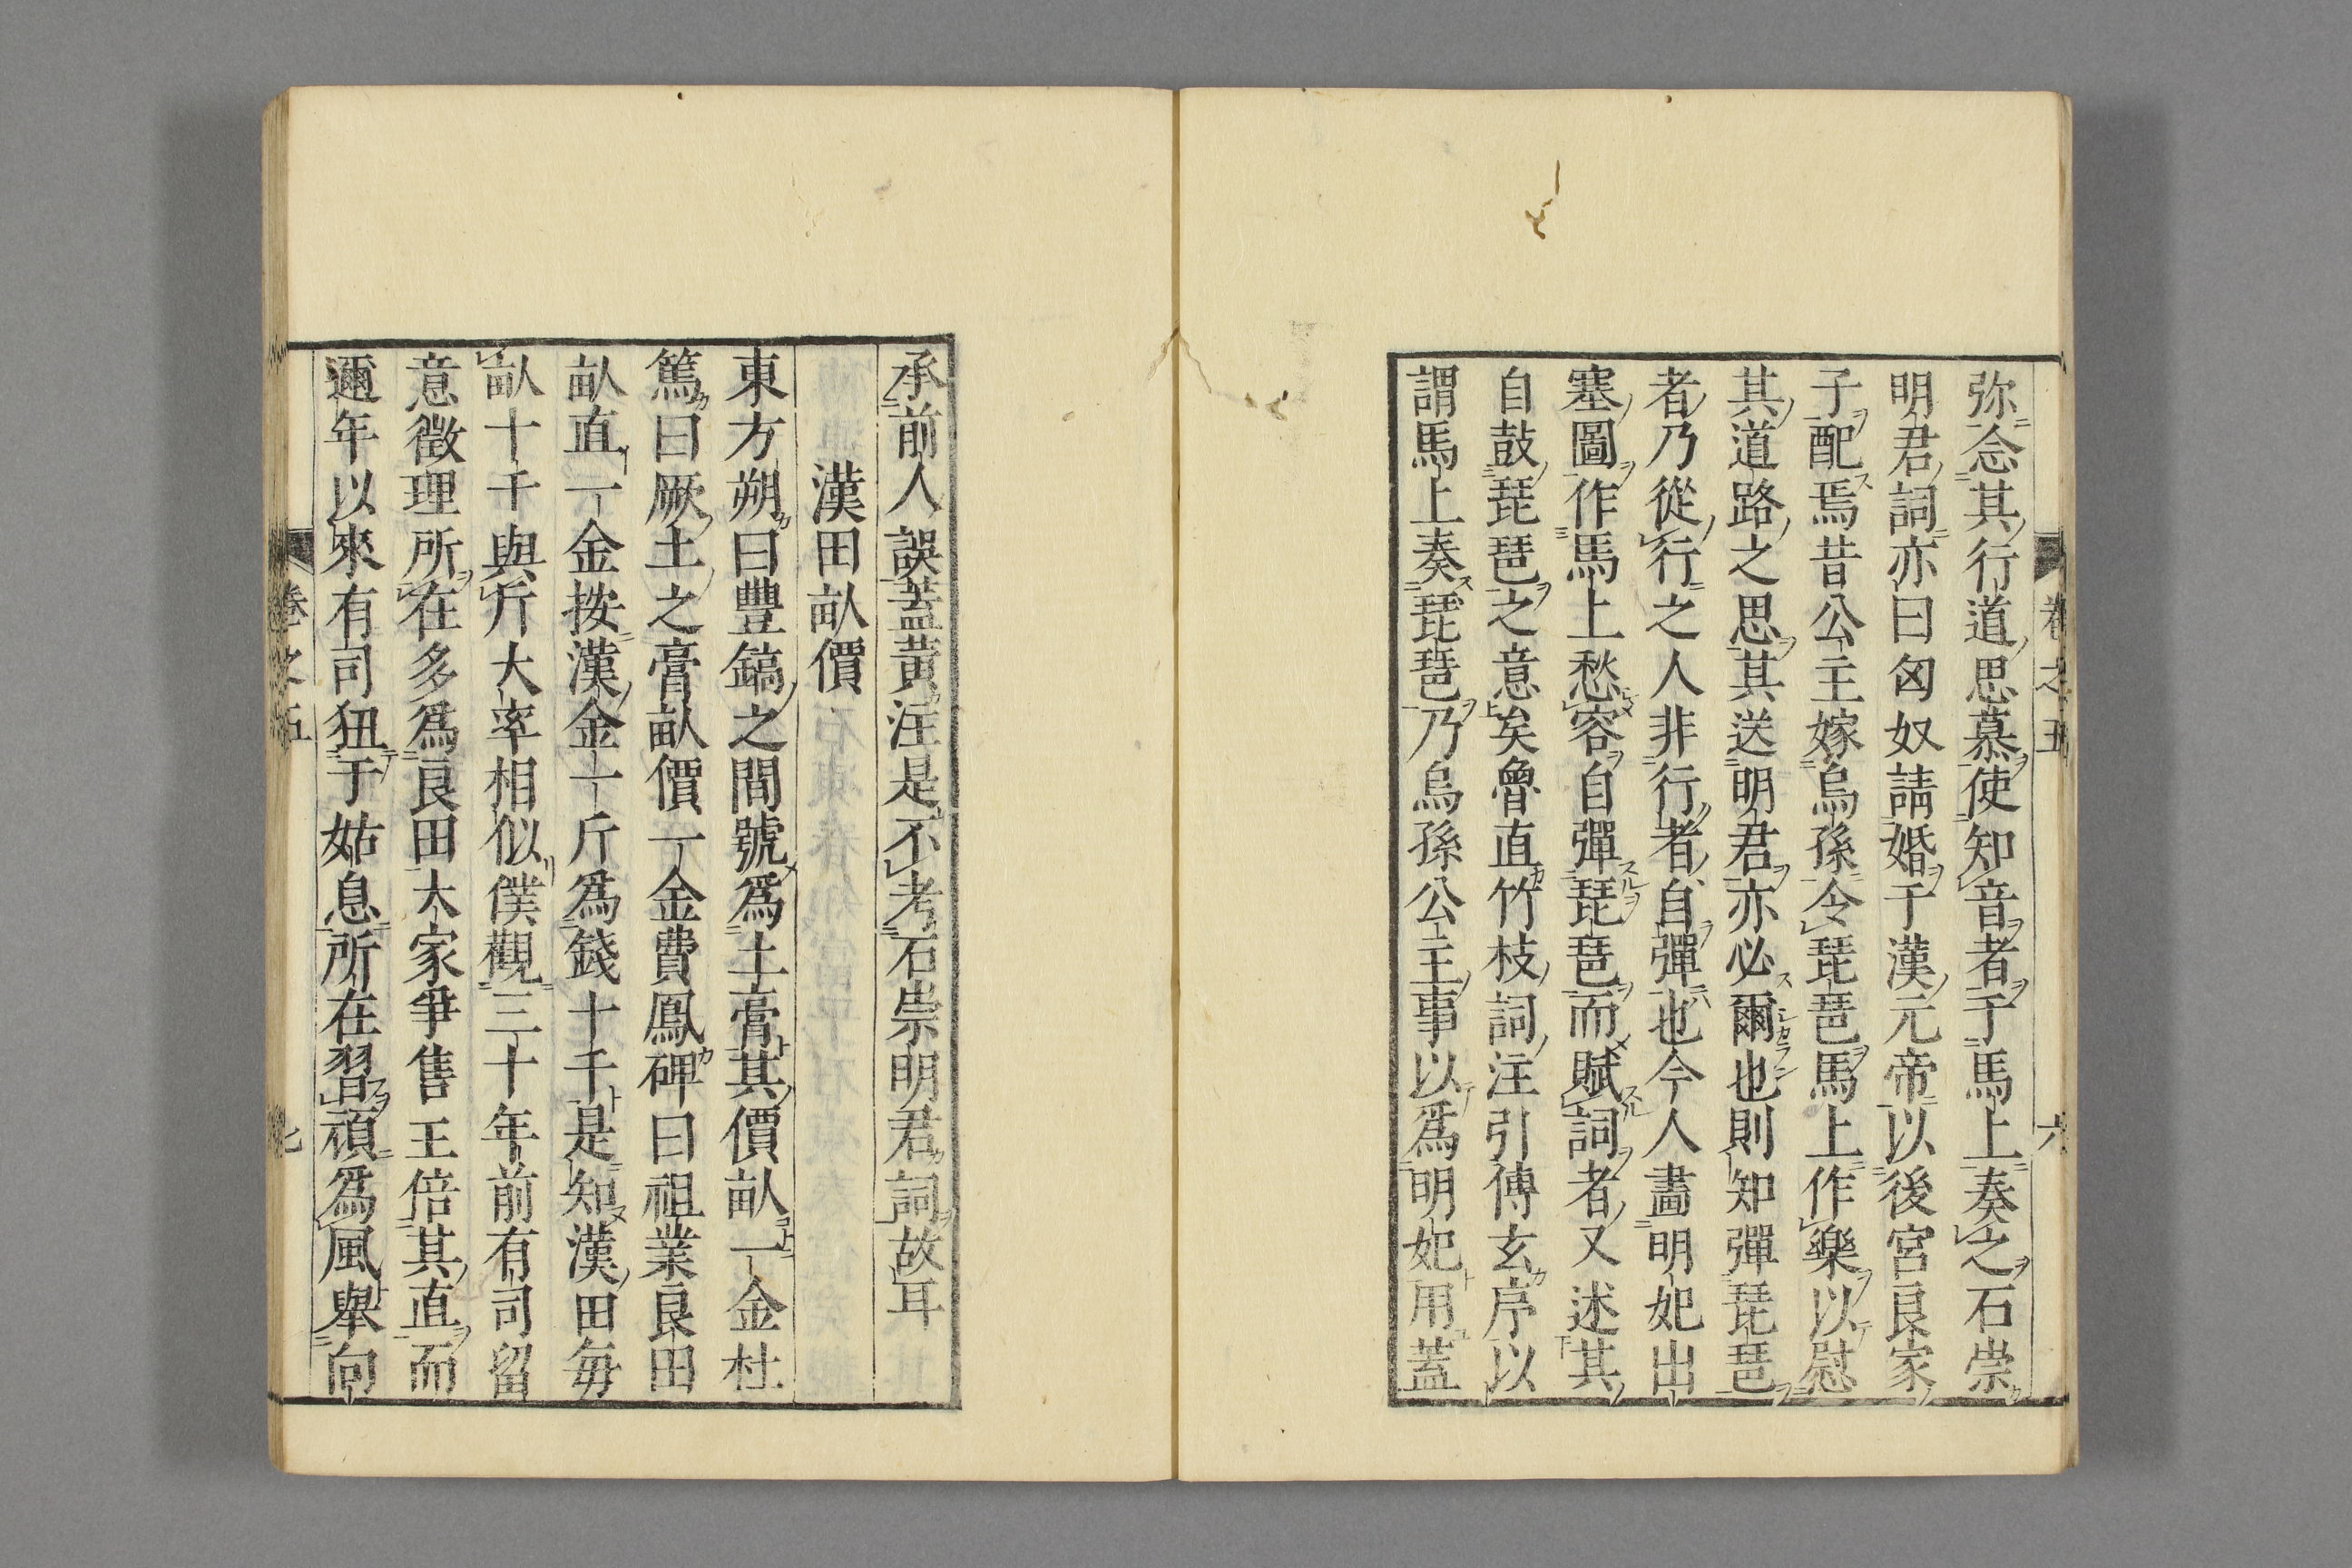 卷之五
六
弥念其行道思慕使知音者于馬上奏之石崇
明君詞亦曰匈奴請婚于漢元帝以後宮良家
子配焉昔公主嫁烏孫令琵琶馬上作樂以慰
其道路之思其送明君亦必爾也則知彈琵琶
者乃從行之人非行者自彈也今人畵明妃出
塞圖作馬上愁容自彈琵琶而賦詞者又述其
自鼓琵琶之意矣魯直竹枝詞注引傅玄序以
謂馬上奏琵琶乃烏孫公主事以爲明妃用蓋
承前人誤蓋黄注是不考石崇明君詞故耳
漢田畝價
東方朔曰豐鎬之間號爲土膏其價畝一金杜
篤曰厥土之膏畝價一金費鳳碑曰祖業良田
畝直一金按漢金一斤爲錢十千是知漢田毎
畝十千與斤大率相似僕觀三十年前有司留
意徵理所在多爲良田大家爭售王倍其直而
邇年以來有司狃于姑息所在習頑爲風舉向
卷之五
七